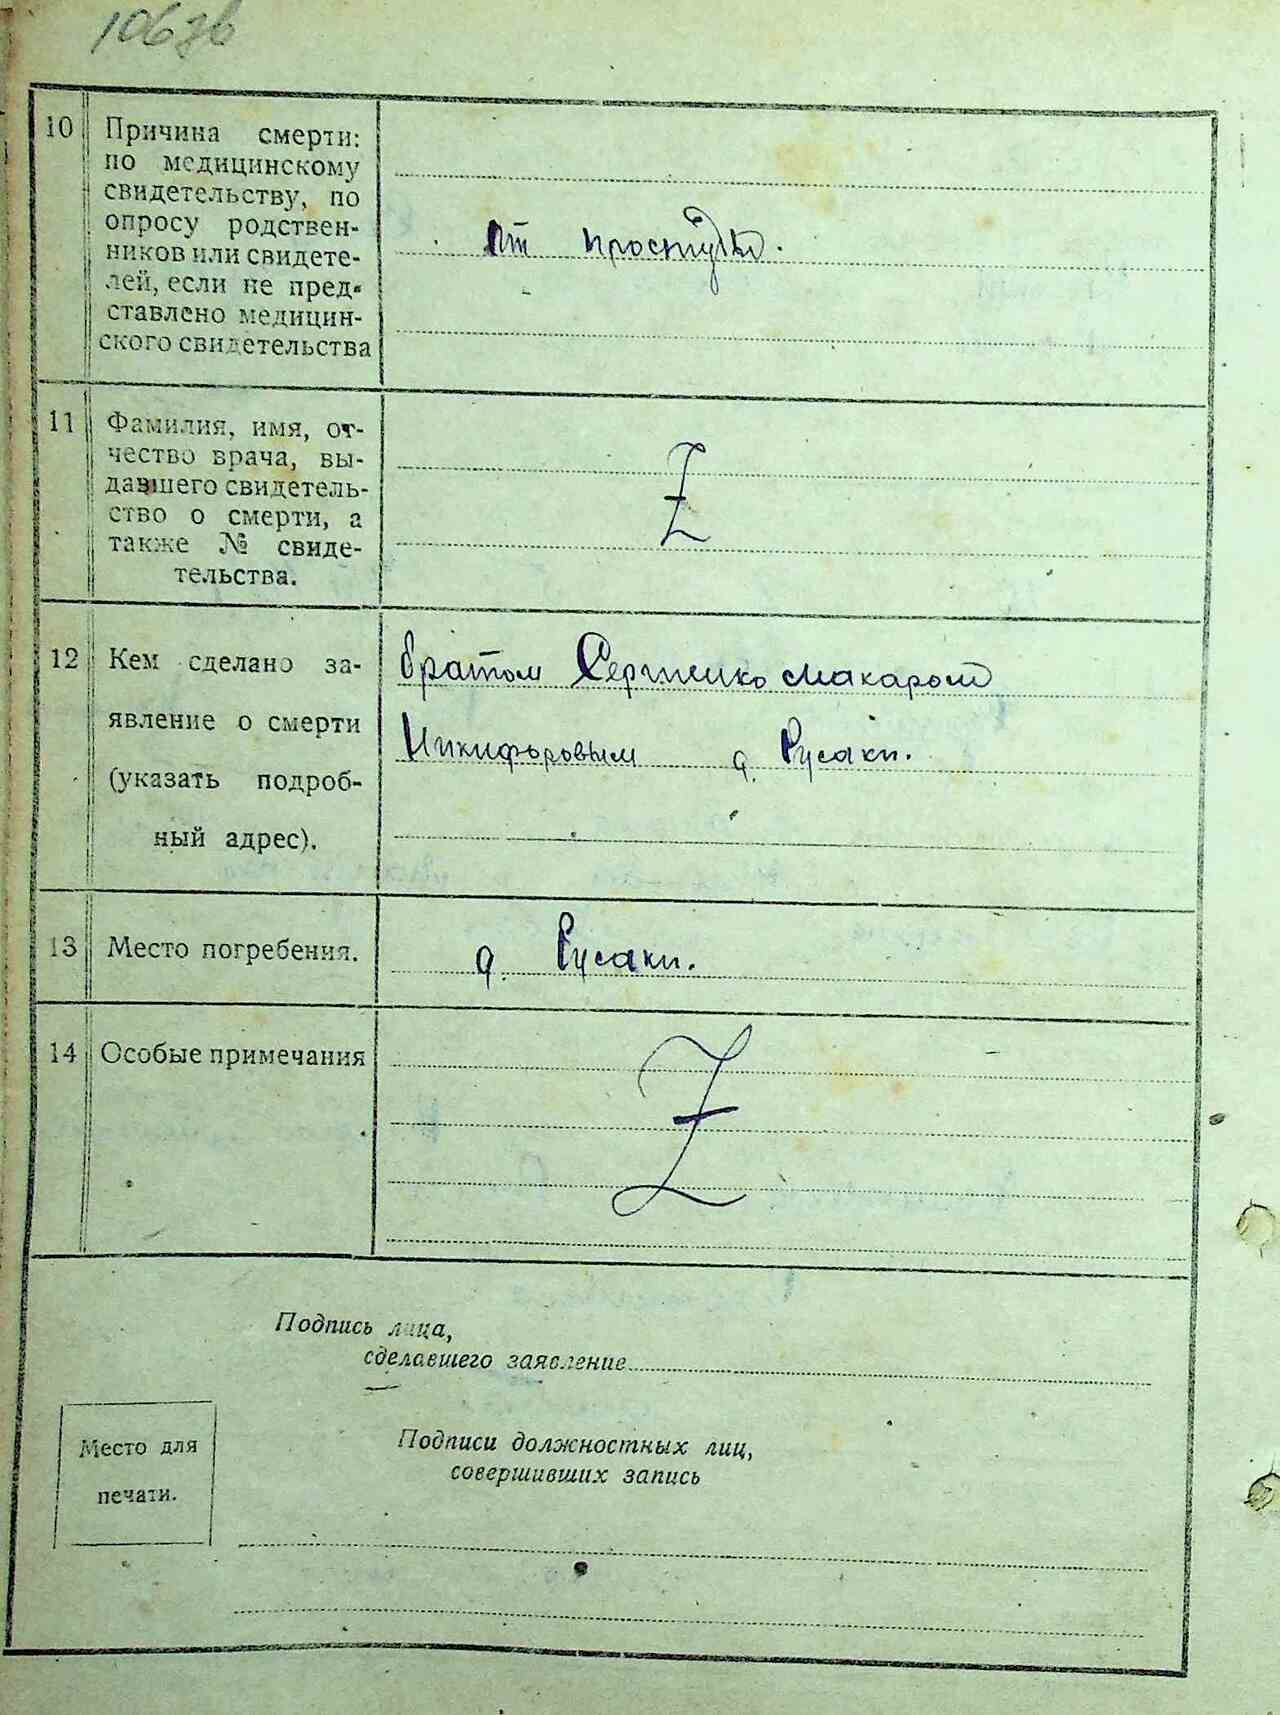 10 Причина смерти:
по медицинскому
свидетельству, по
опросу родствен-
ников или свидете-
лей, если не пред-
ставлено медицин-
ского свидетельства
от простуды.
11 Фамилия, имя, от-
чество врача, вы-
давшего свидетель-
ство о смерти, а
также № свиде-
тельства.
Z
12 Кем сделано за-
явление о смерти
(указать подроб-
ный адрес).
братом Макаром
Никифоровым д. Русаки.
13 Место погребения.
д. Русаки.
14 Особые примечания
Z
Подпись лица,
сделавшего заявление
Место для
печати.
Подписи должностных лиц,
совершивших запись